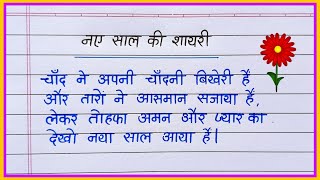 नए साल की शायरी
चाँद ने अपनी चाँदनी बिखेरी हैं
और तारों ने आसमान सजाया हैं,
लेकर तोहफा अमन और प्यार का
देखो नया साल आया हैं।